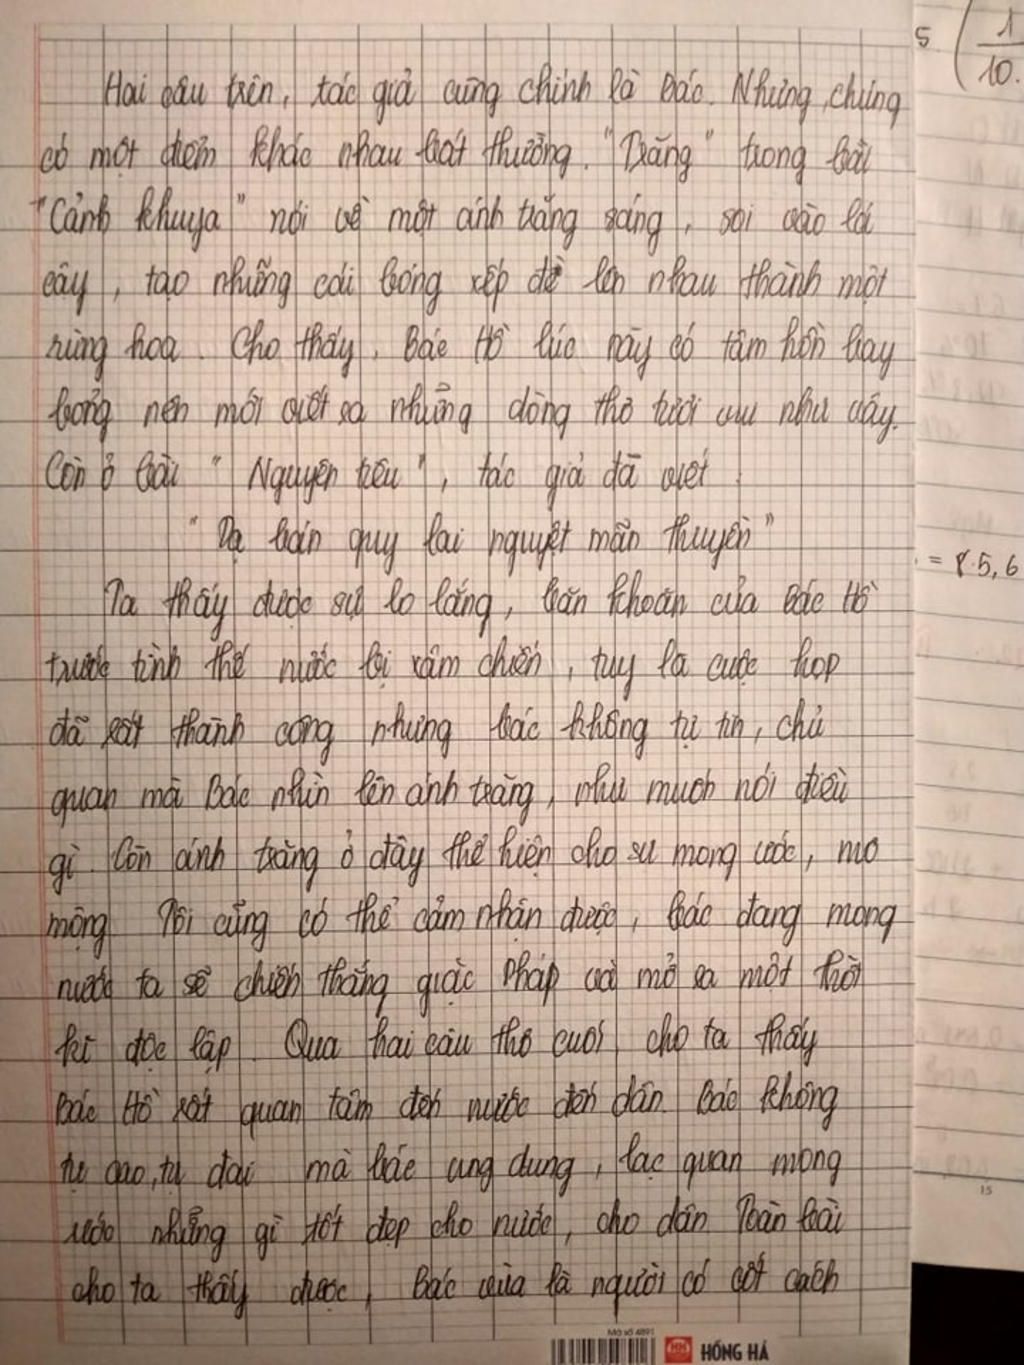 Hai câu trên, tác giả cũng chính là Bác. Nhưng, chúng
có một điểm khác nhau bất thường. "Trăng" trong bài
"Cảnh khuya" nói về một ánh trăng sáng, soi vào lá
cây, tạo những cái bóng xếp đè lên nhau thành một
rừng hoa. Cho thấy, Bác Hồ lúc này có tâm hồn bay
bổng nên mới viết ra những dòng thơ tươi vui như vậy.
Còn ở bài "Nguyên tiêu", tác giả đã viết
"Dạ bán quy lai nguyệt mãn thuyền"
Ta thấy được sự lo lắng, băn khoăn của Bác Hồ
trước tình thế nước bị xâm chiến, tuy là cuộc họp
đã rất thành công nhưng bác không tự tin, chủ
quan mà Bác nhìn lên ánh trăng, như muốn nói điều
gì. Còn ánh trăng ở đây thể hiện cho sự mong ước, mơ
mộng. Tôi cũng có thể cảm nhận được, bác đang mong
nước ta sẽ chiến thắng giặc Pháp và mở ra một thời
kì độc lập. Qua hai câu thơ cuối, cho ta thấy
Bác Hồ rất quan tâm đến nước đến dân. Bác không
tự cao, tự đại mà bác ung dung, lạc quan mong
ước những gì tốt đẹp cho nước, cho dân. Toàn bài
cho ta thấy được, Bác vừa là người có cốt cách
Mã số 4891
HỒNG HÀ
5 ( 1
10.
= 8.5,6
15